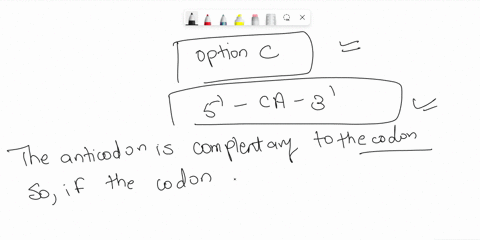 option C
5' - CA - 3'
The anticodon is complentary to the codon
So, if the codon .